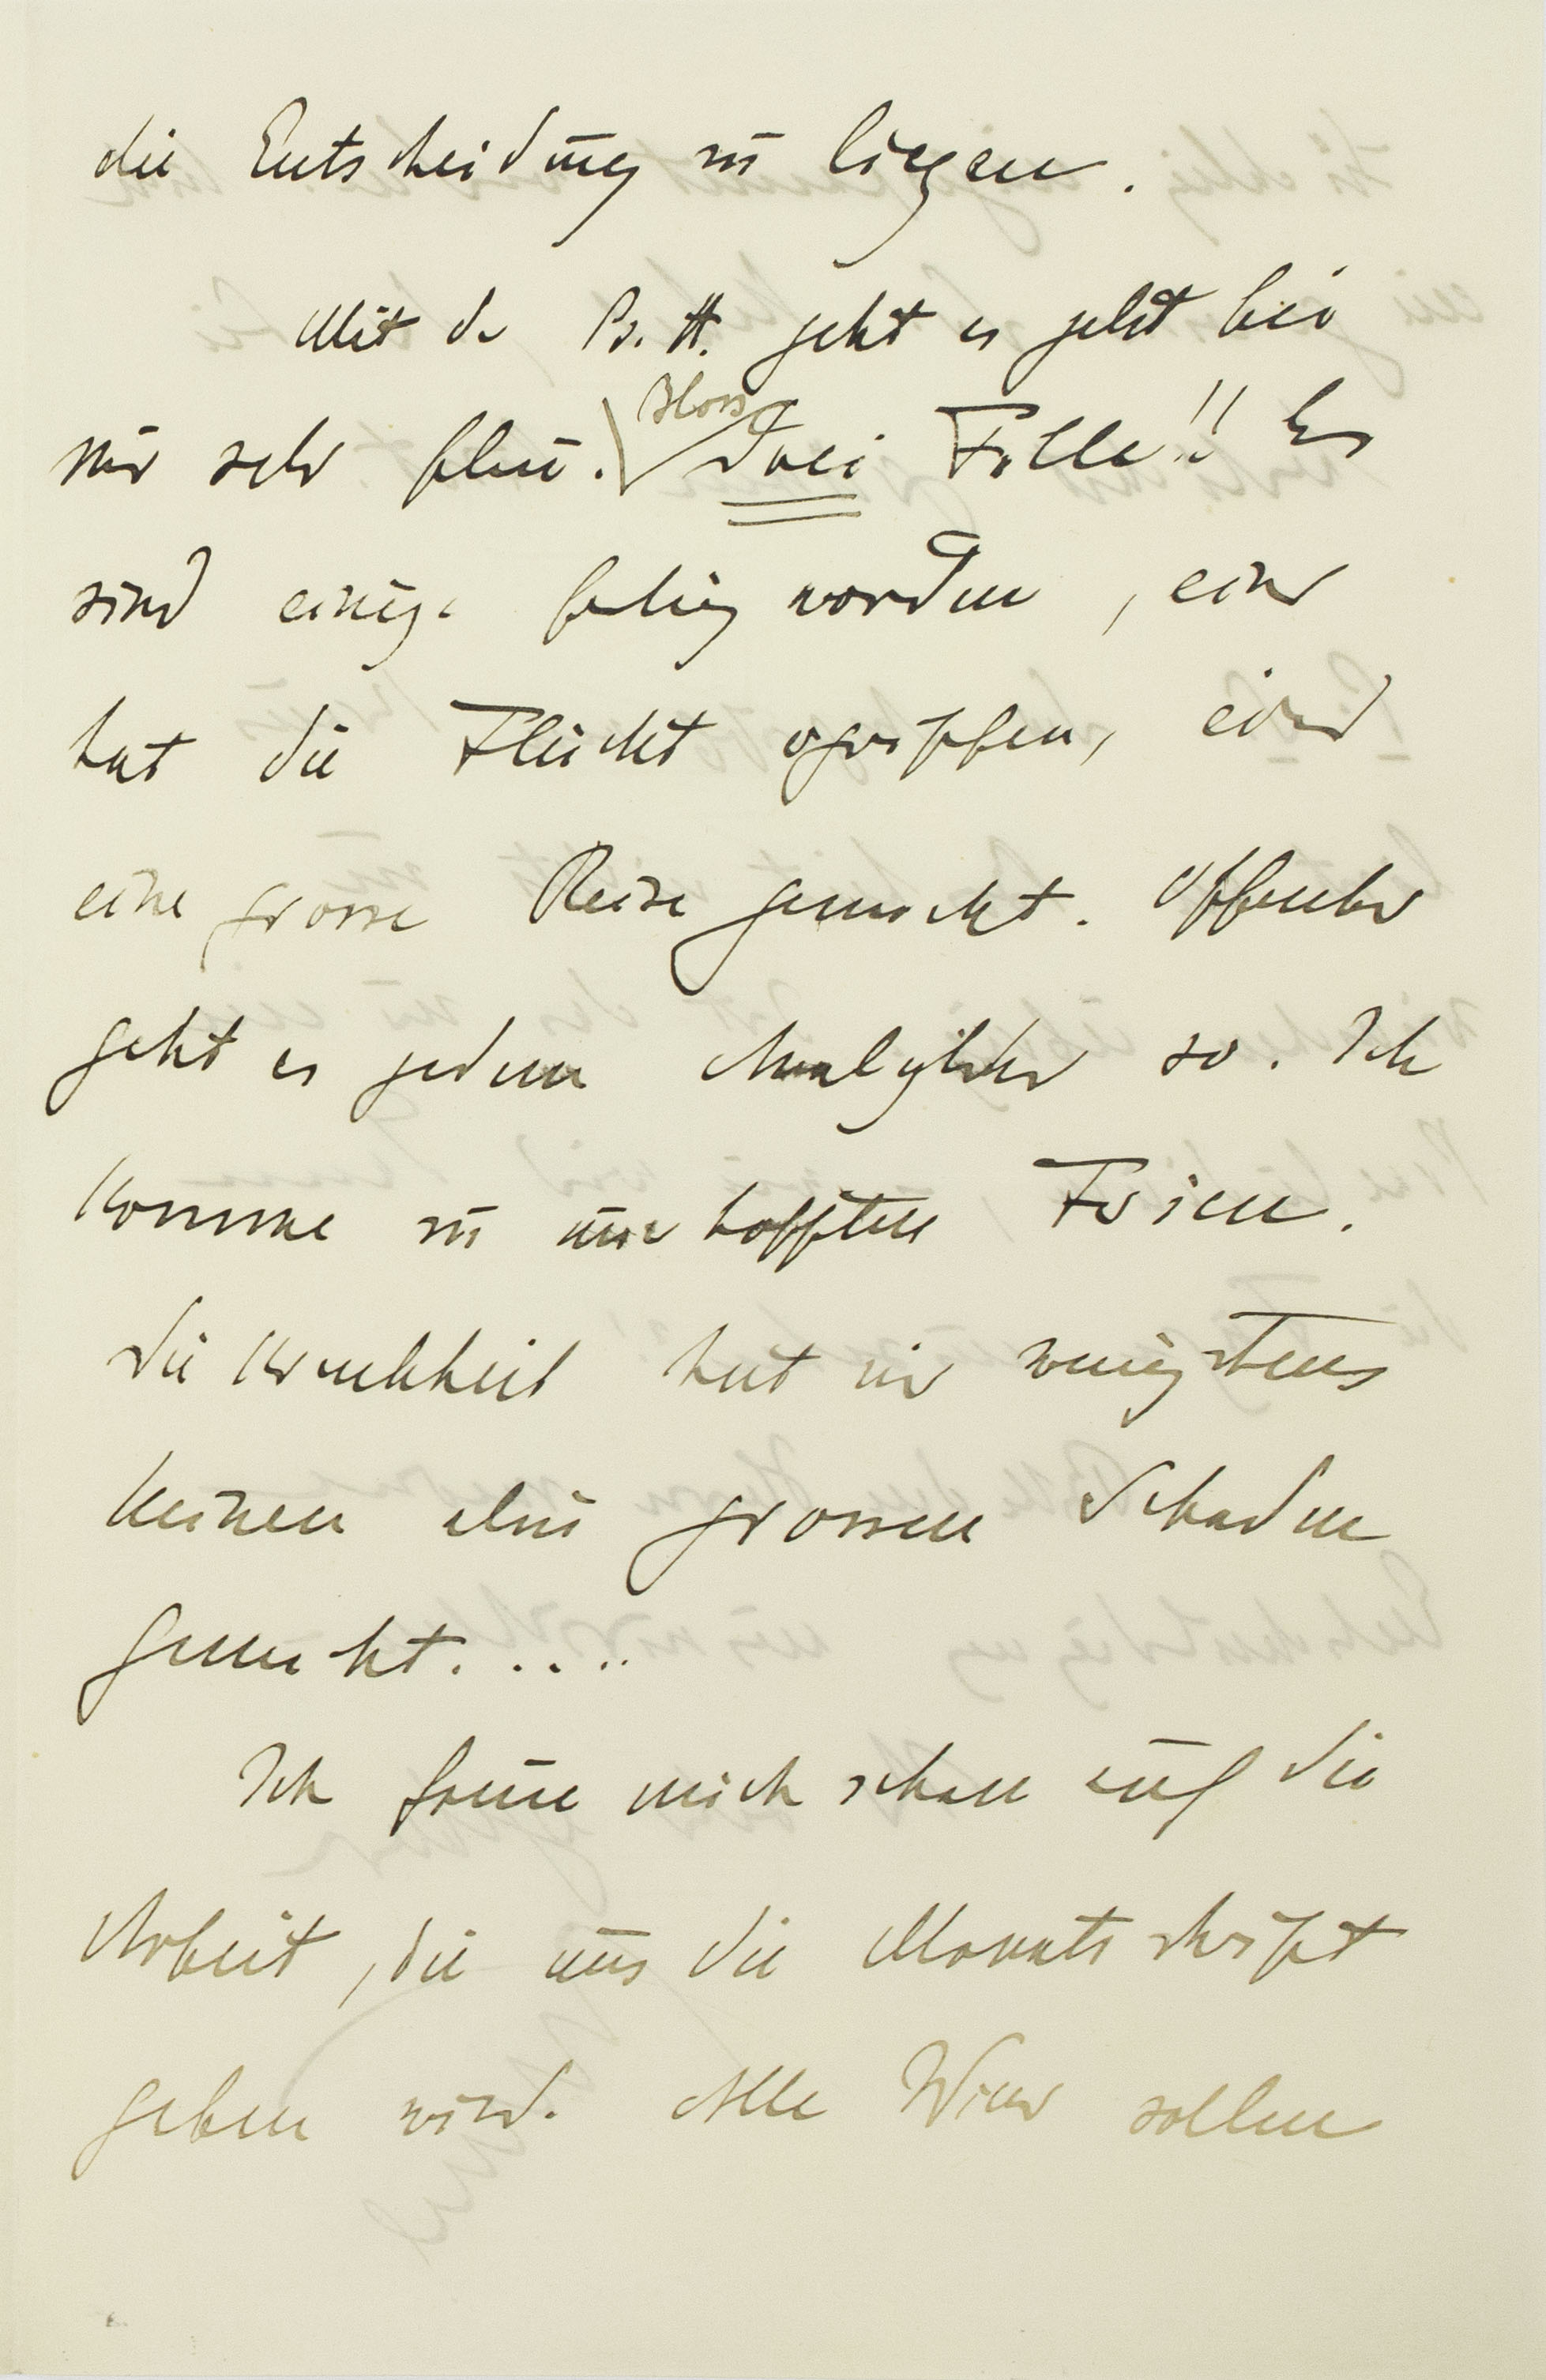 die Entscheidung zu liegen.
Mit der Ps. A. geht es jetzt bei
mir sehr flau. Bloss drei Fälle!! Es
sind einige fertig worden, einer
hat die Flucht ergriffen, einer
eine grosse Reise gemacht. Offenbar
geht es jedem Analytiker so. Ich
komme zu unverhofften Ferien.
Die Krankheit hat mir wenigstens
keinen allzu grossen Schaden
gemacht.....
Ich freue mich schon auf die
Arbeit, die uns die Monatsschrift
geben wird. Alle Wiener sollen